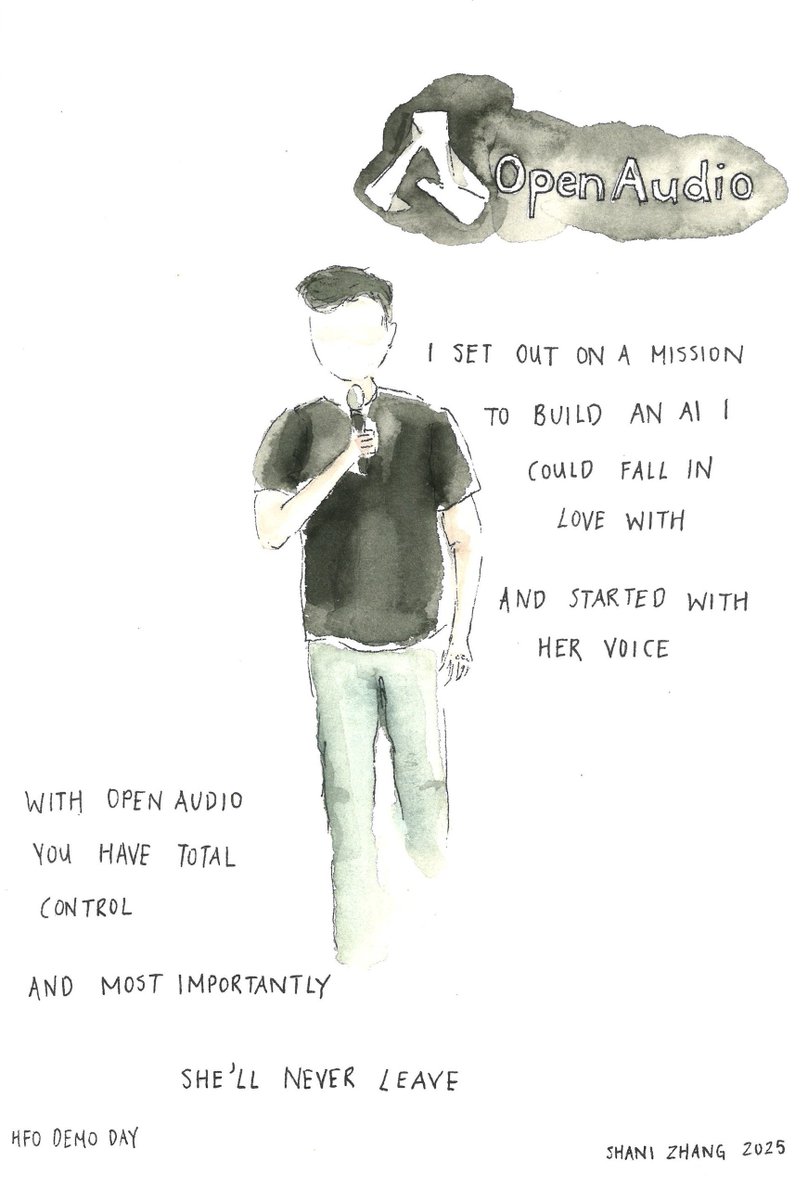 OpenAudio
I SET OUT ON A MISSION
TO BUILD AN AI I
COULD FALL IN
LOVE WITH
AND STARTED WITH
HER VOICE
WITH OPEN AUDIO
YOU HAVE TOTAL
CONTROL
AND MOST IMPORTANTLY
SHE'LL NEVER LEAVE
HFO DEMO DAY
SHANI ZHANG 2025